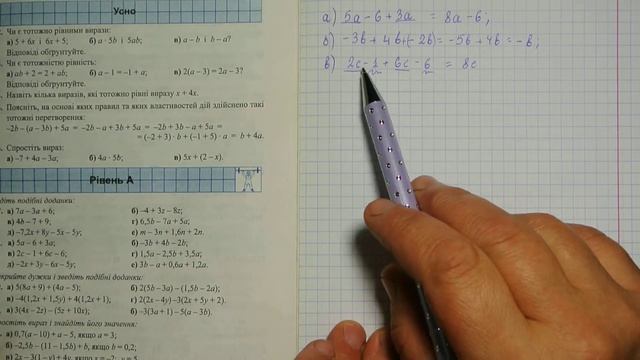 Усно
Чи є тотожно рівними вирази:
а) 5 + 6x і 6x + 5; б) a · 5b і 5ab; в) a – b і b – a?
Відповіді обґрунтуйте.
Чи є тотожністю рівність:
а) ab + 2 = 2 + ab; б) a – 1 = –1 + a; в) 2(a – 3) = 2a – 3?
Відповіді обґрунтуйте.
Назвіть кілька виразів, які тотожно рівні виразу x + 4x.
Поясніть, на основі яких правил та яких властивостей дій здійснено такі
тотожні перетворення:
–2b – (a – 3b) + 5a = –2b – a + 3b + 5a = –2b + 3b – a + 5a =
= (–2 + 3) · b + (–1 + 5) · a = b + 4a.
Спростіть вираз:
а) –7 + 4a – 3a; б) 4a · 5b; в) 5x + (2 – x).
Рівень А
подібні доданки:
а) 7a – 3a + 6; б) –4 + 3z – 8z;
в) 4b – 7 + 9; г) 6,5b – 7a + 5a;
д) –7,2x + 8y – 5x – 5y; е) m – 3n + 1,6n + 2n.
а) 5a – 6 + 3a; б) –3b + 4b – 2b;
в) 2c – 1 + 6c – 6; г) 1,5a – 2,5b + 3,5a;
д) –2x + 3y – 6x – 5y; е) 3b – a + 0,6a + 1,2a.
дужки і зведіть подібні доданки:
а) 5(8a + 9) + (4a – 5); б) 2(5b – 3a) – (1,5b – 2a);
в) –4(1,2x + 1,5y) + 4(1,2x + 1); г) 2(2x – 4y) –3(2x + 5y + 2).
а) 3(4x – 2z) – (5z + 10x); б) –3(3a + 1) – 5(a – 3b).
вираз і знайдіть його значення:
а) 0,7(a – 10) + a – 5, якщо a = 3;
б) –2,5b – (11 – 1,5b) + b, якщо b = 0,2;
а) 5a – 6 + 3a = 8a – 6;
б) –3b + 4b + (–2b) = –5b + 4b = –b;
в) 2c – 1 + 6c – 6 = 8c